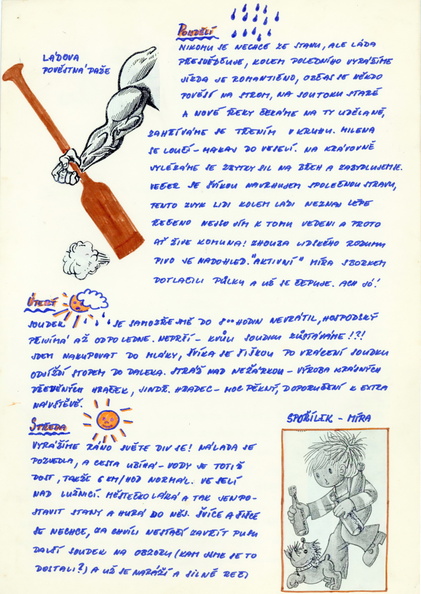 PONDĚLÍ
LÁĎOVA
POVĚSTNÁ PAŽE
NIKOMU SE NECHCE ZE STANU, ALE LÁĎA
PŘESVĚDČUJE, KOLEM POLEDNÍHO VYRÁŽÍME
JÍZDA JE ROMANTICKÁ, OBČAS SE NĚKDO
POVĚSÍ NA STROM, NA SOUTOKU STARÉ
A NOVÉ ŘEKY ČEKÁME NA TY UDĚLANÉ,
ZAHŘÍVÁME SE TŘENÍM V KRUHU. MILENA
SE LOUČÍ - MAKAJ DO VESELÍ. NA KRÁLOVNĚ
VYLÉVÁME ZE ZBYTKY SIL NA BŘEH A ZABYDLUJEME.
VEČER SE ŠVÍKOU NAVRHUJEM SPOLEČNOU STRAVU,
TENTO ZVYK LIDI KOLEM LÁDI NEZNAJ LÉPE
ŘEČENO NEJSOU JIM K TOMU VEDENI A PROTO
AŤ ŽIJE KOMUNA! ZHOUBA LIDSKÉHO ROZUMU
PIVO JE NADOHLED. "AKTIVNÍ" MÍRA S BORKEM
DOTLAČILI PŮLKY A UŽ SE ČEPUJE. ACH JO!
ÚTERÝ
SOUDEK SE SAMOZŘEJMĚ DO 8ºº HODIN NEVRÁTIL, HOSPODSKÝ
PŘIJÍMÁ AŽ ODPOLEDNE. NEPRŠÍ - KVŮLI SOUDKU ZŮSTÁVÁME!?!
JDEM NAKUPOVAT DO MLÁKY, ŠVÍKA SE ŠIŠKOU PO VRÁCENÍ SOUDKU
ODJÍŽDÍ STOPEM DO DALEKA. STRÁŽ NAD NEŽÁRKOU - VÝROBA KRÁSNÝCH
DŘEVĚNÝCH HRAČEK, JINDŘ. HRADEC - MOC PĚKNÝ, DOPORUČENÍ K EXTRA
NÁVŠTĚVĚ.
STŘEDA
VYRÁŽÍME RÁNO SVĚTE DIV SE! NÁLADA SE
POZVEDLA, A CESTA UBÍHÁ - VODY JE TOTIŽ
DOST, TAKŽE 6 KM/HOD NORMAL. VESELÍ
NAD LUŽNICÍ. MĚSTEČKO LÁKÁ A TAK JEN PO-
STAVIT STANY A HURÁ DO NĚJ. ŠVÍCE A ŠIŠCE
SE NECHCE, ZA CHVÍLI NESTAČÍ ZAVŘÍT PUSU
DALŠÍ SOUDEK NA OBZORU (KAM JSME SE TO
DOSTALI?) A UŽ SE NARÁŽÍ A SILNĚ REČÍ
SPOŘÍLEK - MÍRA